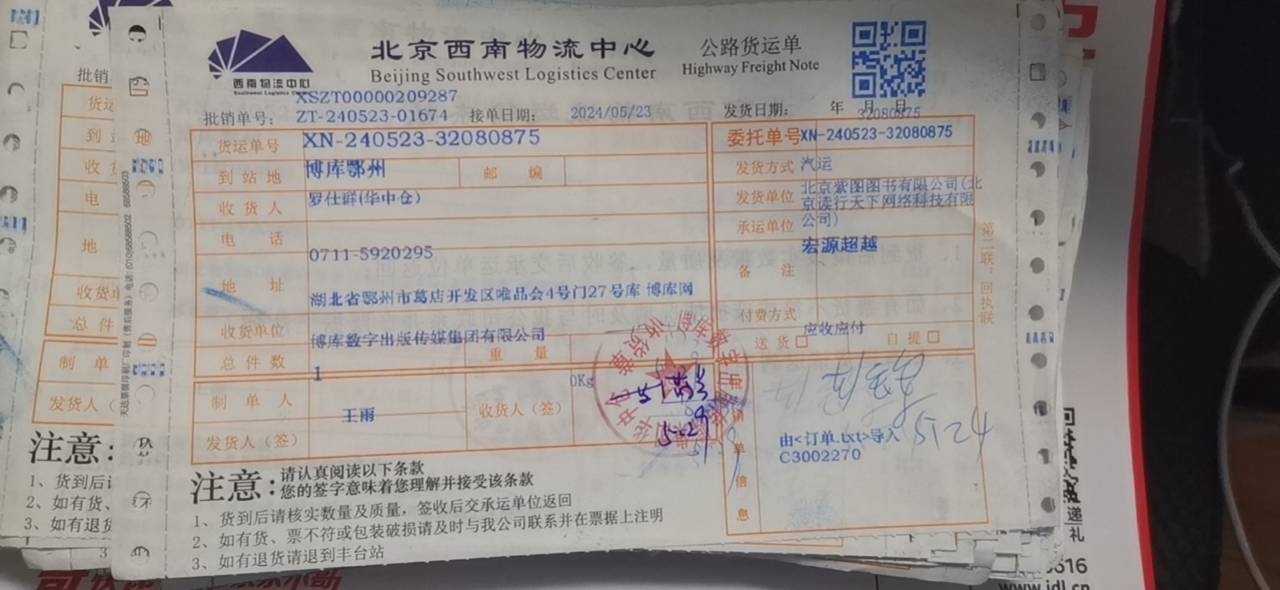 西南物流中心
Southwest Logistics Center
北京西南物流中心
Beijing Southwest Logistics Center
公路货运单
Highway Freight Note
XSZT00000209287
批销单号: ZT-240523-01674 接单日期: 2024/05/23 发货日期: 年 月 日
32080875
货运单号 XN-240523-32080875 委托单号 XN-240523-32080875
到站地 博库鄂州 邮 编 发货方式 汽运
收货人 罗仕群(华中仓) 发货单位 北京紫图图书有限公司(北京读行天下网络科技有限公司)
电 话 0711-5920295 承运单位 宏源超越
地 址 湖北省鄂州市葛店开发区唯品会4号门27号库 博库网 备 注
收货单位 博库数字出版传媒集团有限公司 付款方式 应收应付
总件数 1 重 量 0Kg 送 货 自 提
制单人 王雨 收货人（签）
发货人（签）
5.29
5.24
单
信
息
由<订单.txt>导入
C3002270
第二联：回执联
注意:
请认真阅读以下条款
您的签字意味着您理解并接受该条款
1、货到后请核实数量及质量，签收后交承运单位返回
2、如有货、票不符或包装破损请及时与我公司联系并在票据上注明
3、如有退货请退到丰台站
批销
货运
到
收
电
地
收货单
总 件
制 单
发货人（
注意:
1、货到后
2、如有货、
3、如有退货
递
礼
5616
www.jdl.cn